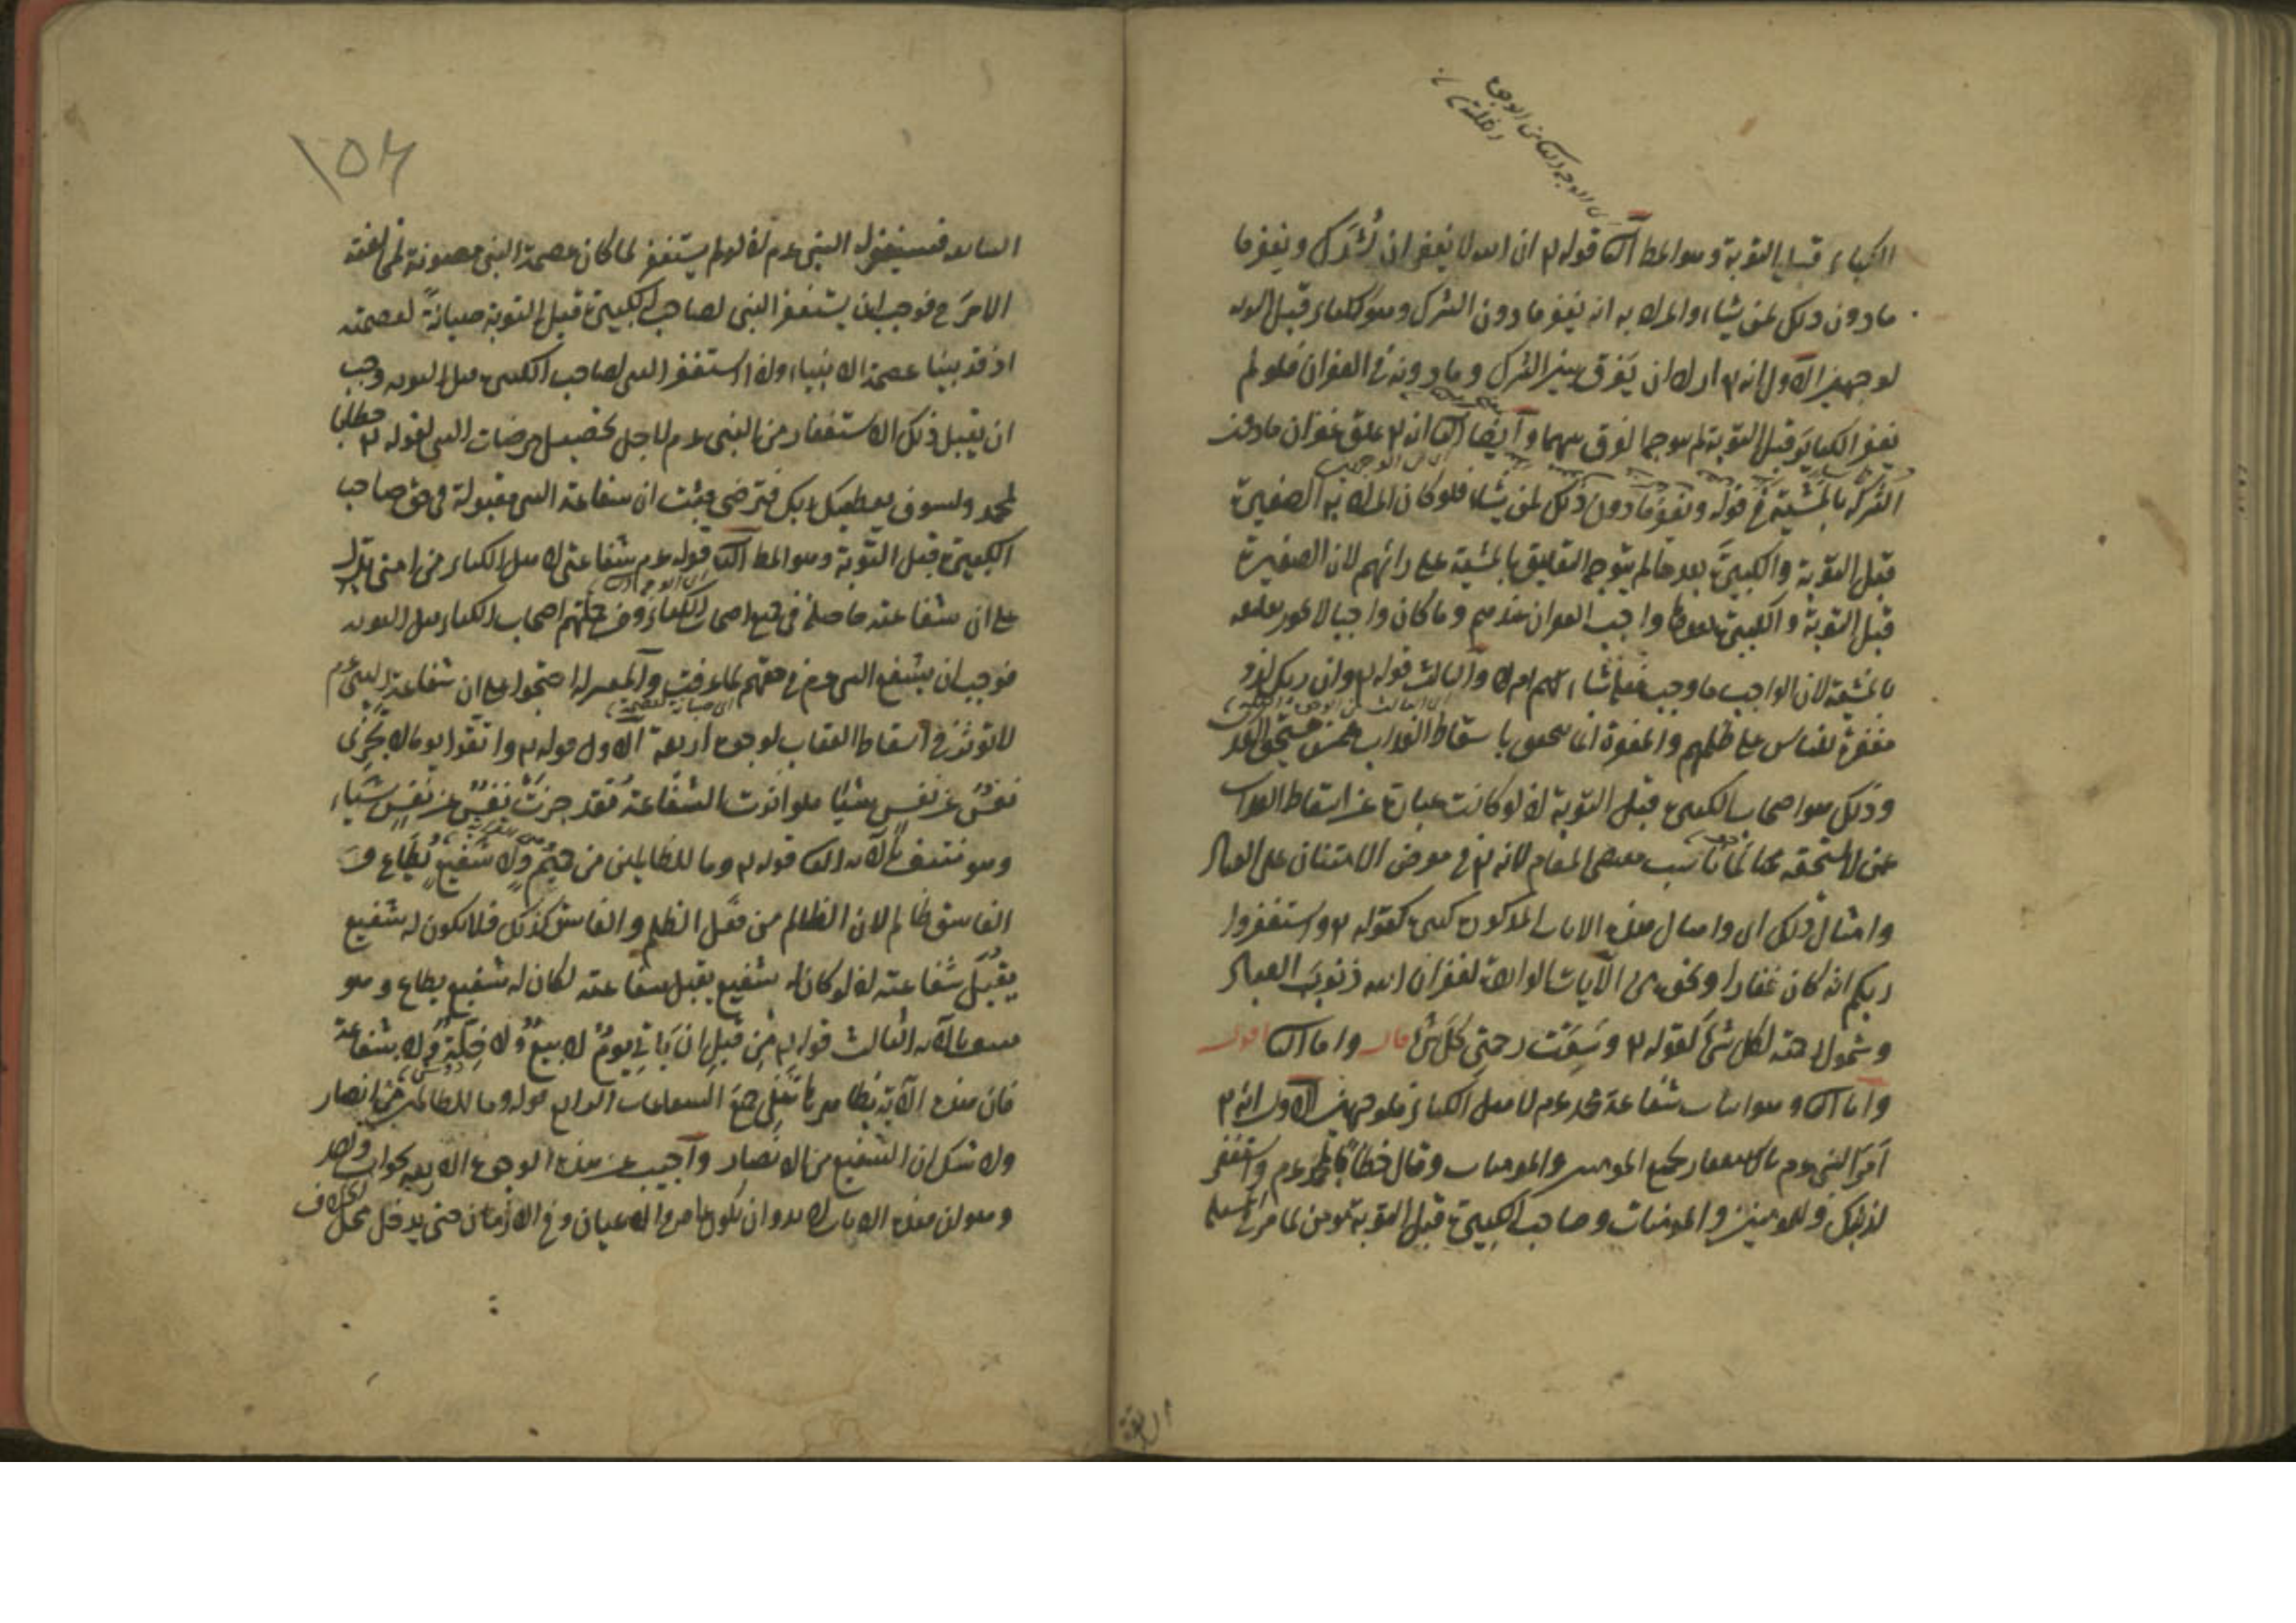 الكبائر قبل التوبة وهو المط الثا قوله تع ان الله لا يغفر ان يشرك ويغفر ما
ما دون ذلك لمن يشاء والمراد به انه يغفر ما دون الشرك وهو الكبائر قبل التوبه
لوجهين الاول انه تع اراد ان يفرق بين الشرك وما دونه في الغفران فلو لم
يغفر الكبائر قبل التوبة لم يتوجه الفرق بينهما وايضا الثا انه تع علق غفران ما دون
الشرك بالمشية في قوله ويغفر ما دون ذلك لمن يشاء فلو كان المراد به الصغيرة
قبل التوبة والكبيرة بعدها لم يتوجه التعليق بالمشية على رائهم لان الصغيرة
قبل التوبة والكبيرة بعدها واجب الغفران عندهم وما كان واجبا لا يجوز تعليقه
بالمشية لان الواجب ما وجب فعله شاء ام لا والثالث قوله تع وان ربك لذو
مغفرة للناس على ظلمهم والمغفرة انما يتحقق باسقاط العذاب عمن يستحق العذ
وذلك هو اصحاب الكبيرة قبل التوبة اذ لو كانت عبارة عن اسقاط العذاب
عمن لا يستحقه لما ناسب مقتضى المقام لانه تع في معرض الامتنان على العباد
وامثال ذلك اى وامثال هذه الايات المذكورة كثيرة كقوله تع واستغفروا
ربكم انه كان غفارا ونحوه من الآيات الدالة لغفران الله ذنوب العباد
وشمول رحمته لكل شئ كقوله تع وسعت رحمتى كل شئ قال واما الثا اقول
واما الثا وهو اثبات شفاعة محمد عم لاهل الكبائر فلوجهين الاول انه تع
امر النبى عم بالاستغفار لجميع المؤمنين والمؤمنات وقال خطابا لمحمد عم واستغفر
لذنبك وللمؤمنين والمؤمنات وصاحب الكبيرة قبل التوبة مؤمن لما مر في
١٥٦
فيستغفر له النبى عم اذ لو لم يستغفر لما كان عصمة النبى مصونة لمخالفته
الامر ح فوجب ان يستغفر النبى لصاحب الكبيرة قبل التوبة صيانة لعصمته
اذ قد بينا عصمة الانبياء واذا استغفر النبى لصاحب الكبيرة قبل التوبه وجب
ان يقبل ذلك الاستغفار من النبى عم لاجل تحصيل مرضات النبى لقوله تع خطابا
لمحمد ولسوف يعطيك ربك فترضى فيثبت ان شفاعة النبى مقبولة في حق صاحب
الكبيرة قبل التوبة وهو المط الثا قوله عم شفاعتى لاهل الكبائر من امتى يدل
على ان شفاعته حاصلة في جميع اصحاب الكبائر ومن جملتهم اصحاب الكبائر قبل التوبه
فوجب ان يشفع النبى عم في حقهم لما عرفت والمعتزلة احتجوا على ان شفاعة النبى عم
لا تؤثر في اسقاط العقاب لوجوه اربعة الاول قوله تع واتقوا يوما لا تجزى
نفس عن نفس شيئا فلو اثرت الشفاعة فقد جزت نفس عن نفس شيئا
وهو منتف بالآيه الثا قوله تع وما للظالمين من حميم ولا شفيع يطاع و
الفاسق ظالم لان الظالم من فعل الظلم والفاسق كذلك فلا يكون له شفيع
يقبل شفاعته اذ لو كان له شفيع يقبل شفاعته لكان له شفيع يطاع وهو
بالآيه الثالث قوله تع من قبل ان ياتي يوم لا بيع ولا خلة ولا شفاعة
فان هذه الآية بظاهرها تنفى جميع الشفاعات الرابع قوله وما للظالمين من انصار
ولا شك ان الشفيع من الانصار واجيب عن هذه الوجوه الاربعه بجواب واحد
وهو ان هذه الايات لا بد وان يكون عامه في الاعيان وفي الازمان حتى يدخل محل الخلاف